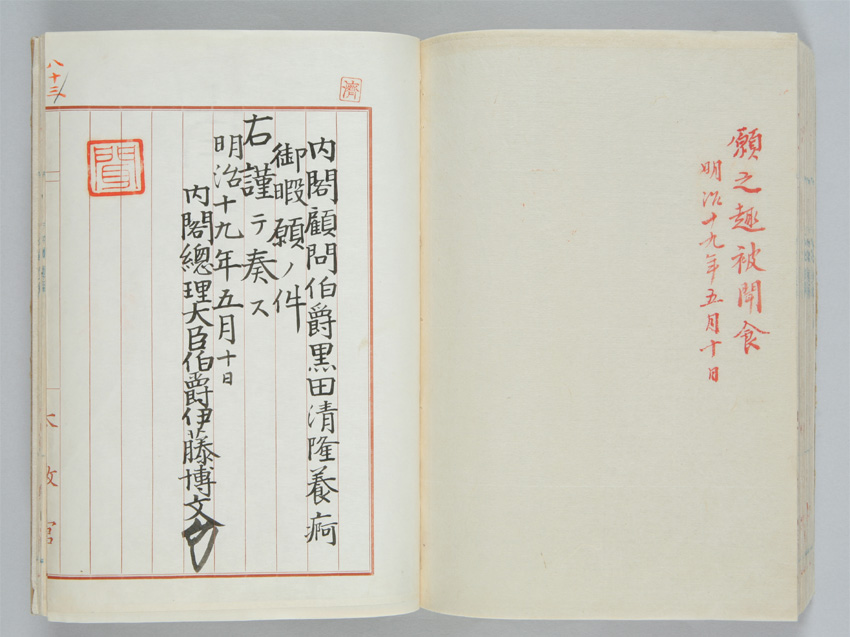 願之趣被聞食
明治十九年五月十日
濟
内閣顧問伯爵黒田清隆養痾
御暇願ノ件
右謹テ奏ス
明治十九年五月十日
内閣總理大臣伯爵伊藤博文
聞
八十三
太政官